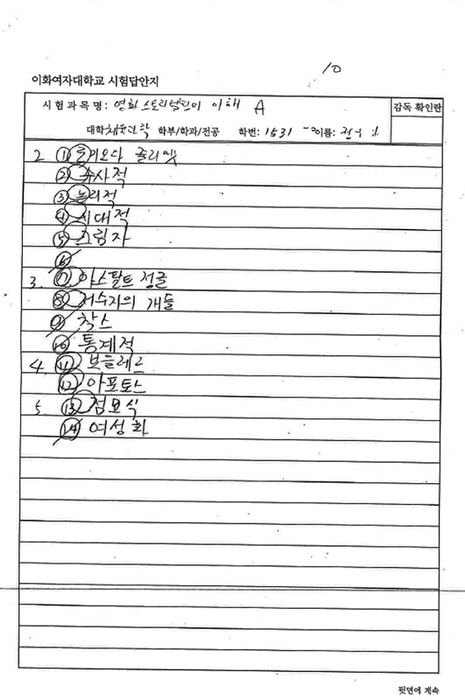 10
이화여자대학교 시험답안지
시험과목명: 영화스토리텔링의 이해 A
감독 확인란
대학 학부/학과/전공 학번: 1531 이름:
2. ① 줄리오다 줄리엣
② 수사적
③ 논리적
④ 시대적
⑤ 그림자
⑥
3. ⑦ 아스팔트 정글
⑧ 저수지의 개들
⑨ 착스
⑩ 통계적
4. ⑪ 보들레르
⑫ 아포토스
5. ⑬ 점묘식
⑭ 여성화
뒷면에 계속